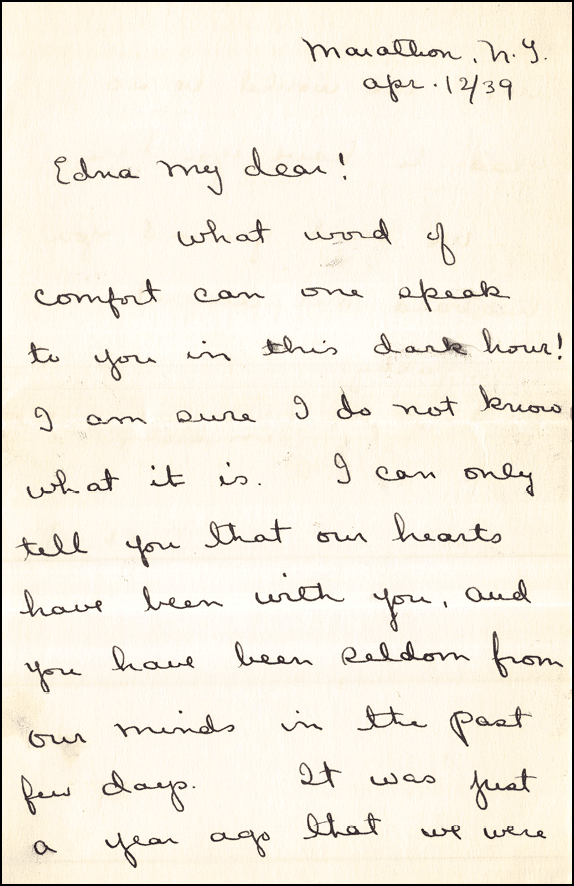 Marathon, N.Y.
Apr. 12/39
Edna my dear!
What word of
comfort can one speak
to you in this dark hour!
I am sure I do not know
what it is. I can only
tell you that our hearts
have been with you, and
you have been seldom from
our minds in the past
few days. It was just
a year ago that we were